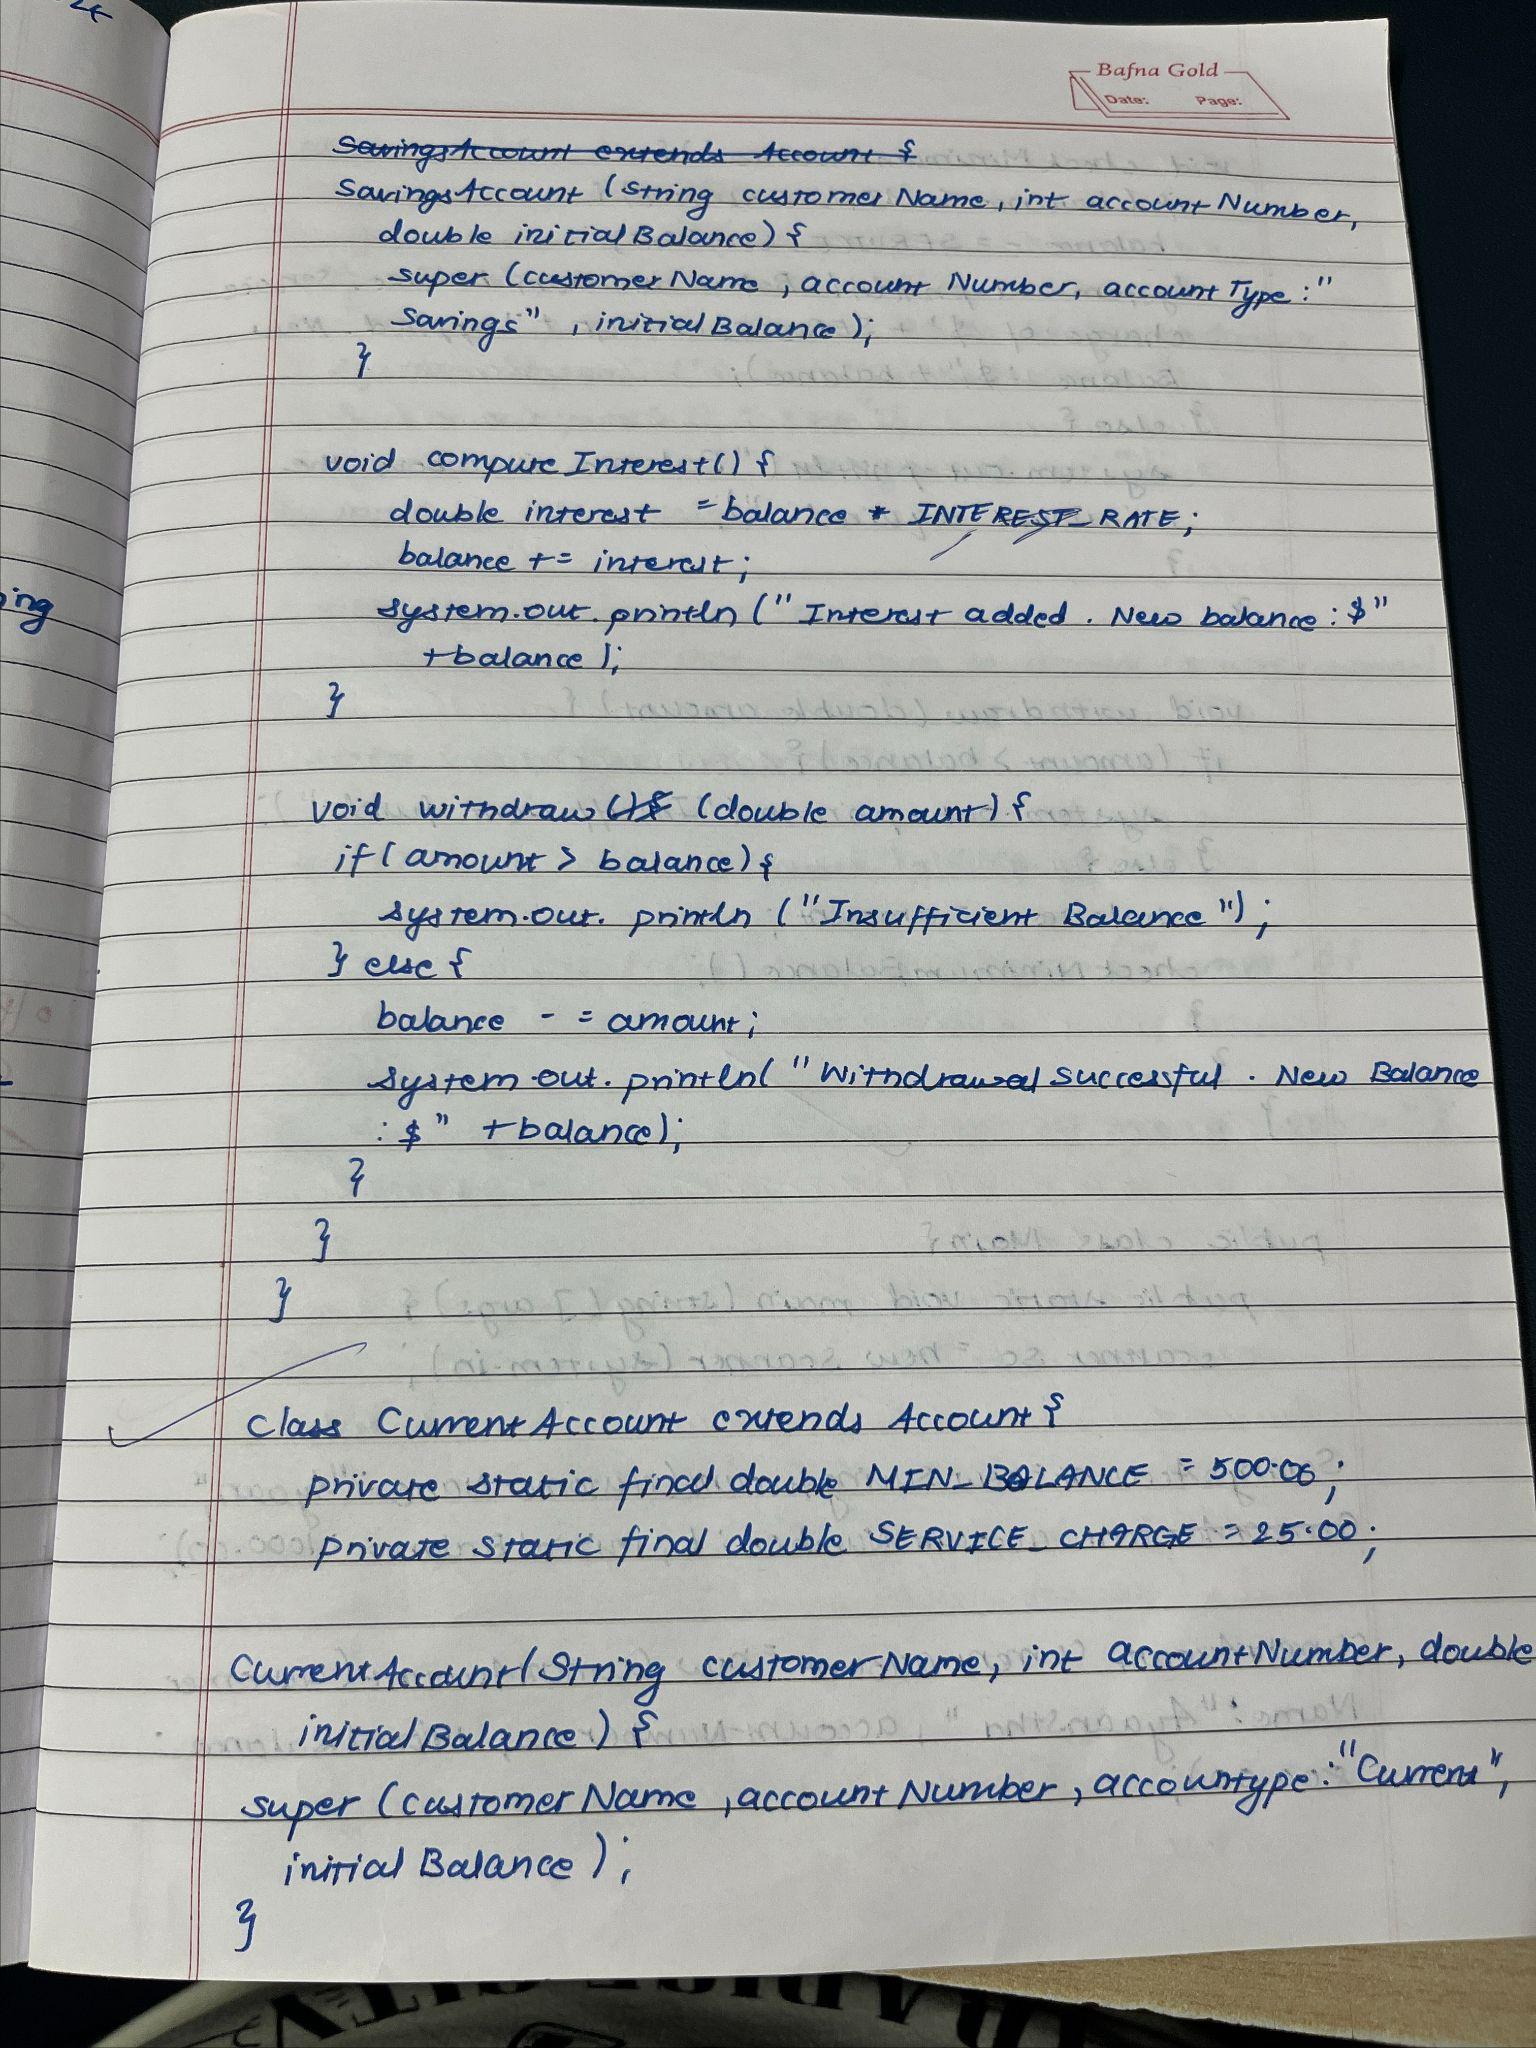 Bafna Gold
Date: Page:
SavingsAccount extends Account {
SavingsAccount (String customerName, int accountNumber,
double initialBalance) {
super (customerName, accountNumber, accountType : "
Savings", initialBalance);
}
void computeInterest() {
double interest = balance * INTEREST_RATE;
balance += interest;
system.out.println (" Interest added. New balance : $"
+balance);
}
void withdraw (){ (double amount) {
if (amount > balance) {
system.out. println ("Insufficient Balance");
} else {
balance - = amount;
system.out.println( "Withdrawal successful. New Balance
: $" +balance);
}
}
}
class CurrentAccount extends Account {
private static final double MIN_BALANCE = 500.00;
private static final double SERVICE_CHARGE = 25.00;
CurrentAccount (String customerName, int accountNumber, double
initialBalance) {
super (customerName, accountNumber, accountype : "Current",
initialBalance);
}
ing